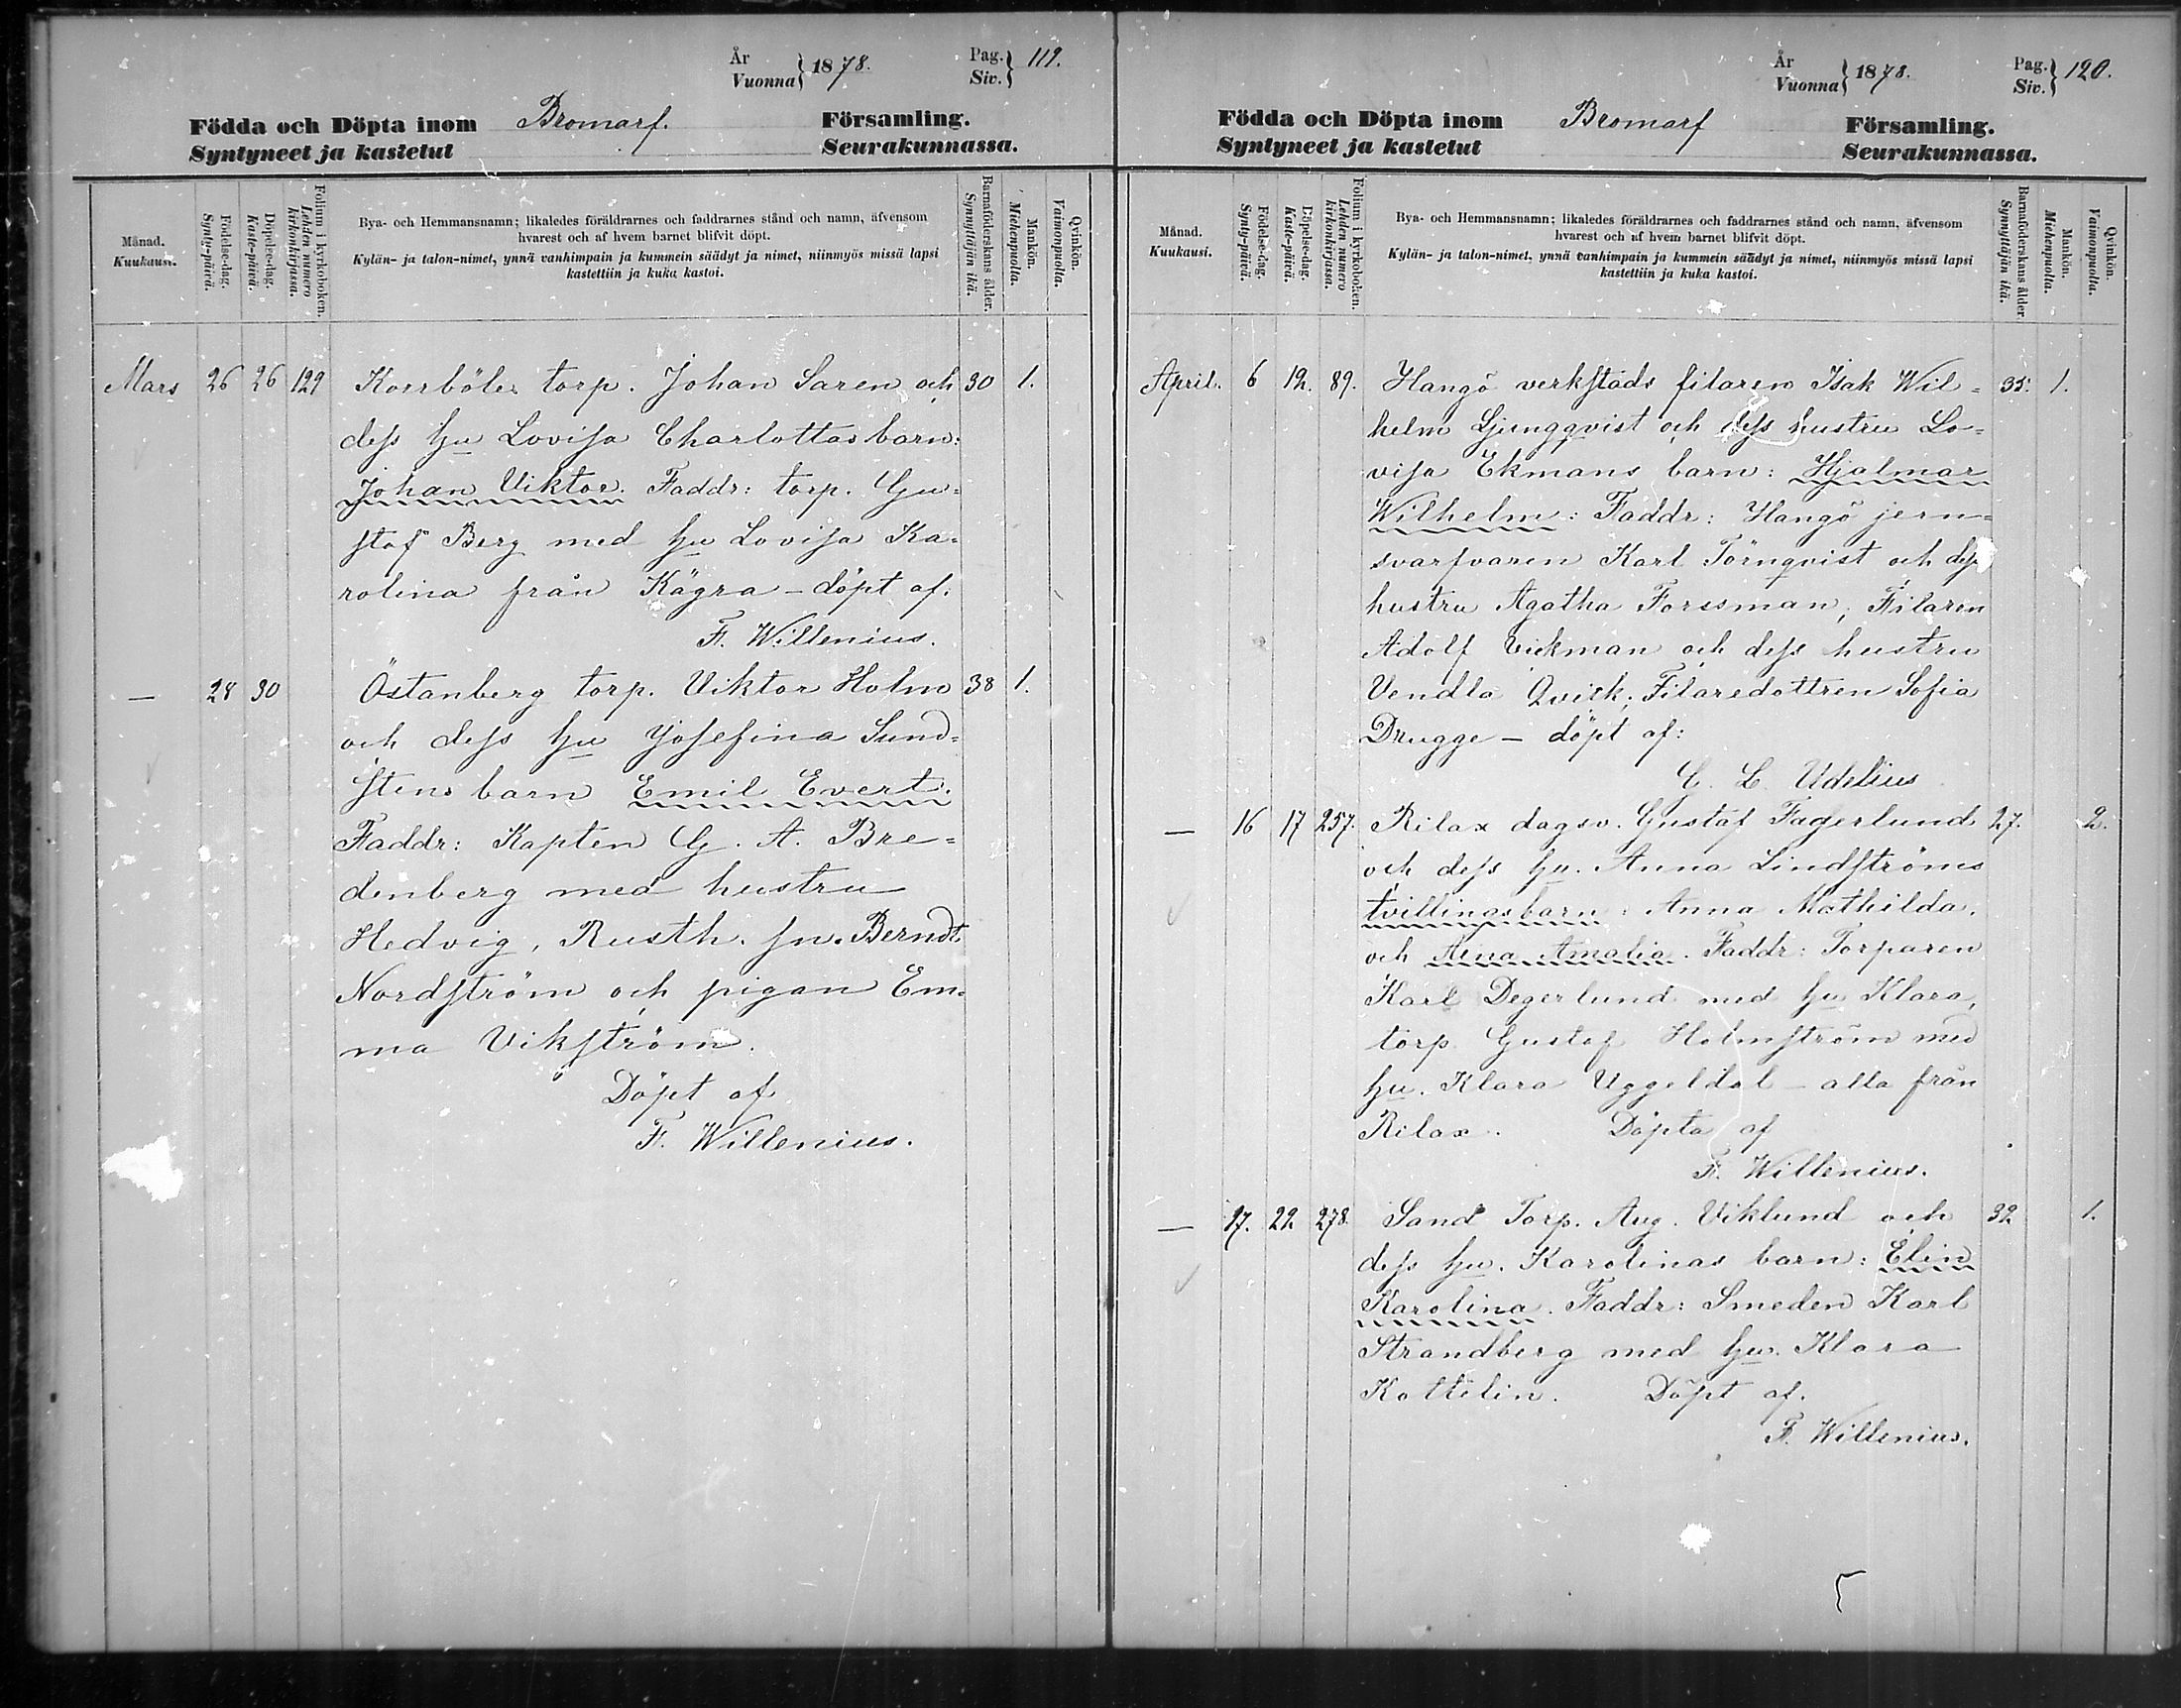 År
Vuonna } 1878.
Pag.
Siv. } 119.
Födda och Döpta inom Bromarf. Församling.
Syntyneet ja kastetut Seurakunnassa.
Månad.
Kuukausi.
Födelse-dag.
Synty-päivä.
Döpelse-dag.
Kaste-päivä.
Folium i kyrkoboken.
Lehden numero
kirkonkirjassa.
Bya- och Hemmansnamn; likaledes föräldrarnes och faddrarnes stånd och namn, äfvensom
hvarest och af hvem barnet blifvit döpt.
Kylän- ja talon-nimet, ynnä vanhimpain ja kummein säädyt ja nimet, niinmyös missä lapsi
kastettiin ja kuka kastoi.
Barnaföderskans ålder.
Synnyttäjän ikä.
Mankön.
Miehenpuolta.
Qvinkön.
Vaimonpuolta.
Mars 26 26 122 Korsböle torp. Johan Saren och 30 1.
dess hu Lovisa Charlottas barn:
Johan Viktor. Faddr: torp. Gu-
staf Berg med hu Lovisa Ka-
rolina från Kägra – döpt af.
F. Willenius.
— 28 30 Östanberg torp. Viktor Holm 38 1.
och dess hu Josefina Sund-
stens barn Emil Evert.
Faddr: Kapten G. A. Bre-
denberg med hustru
Hedvig, Rusth. sn. Berndt
Nordström och pigan Em-
ma Vikström.
Döpt af
F. Willenius.
År
Vuonna } 1878.
Pag.
Siv. } 120.
Födda och Döpta inom Bromarf Församling.
Syntyneet ja kastetut Seurakunnassa.
Månad.
Kuukausi.
Födelse-dag.
Synty-päivä.
Döpelse-dag.
Kaste-päivä.
Folium i kyrkoboken.
Lehden numero
kirkonkirjassa.
Bya- och Hemmansnamn; likaledes föräldrarnes och faddrarnes stånd och namn, äfvensom
hvarest och af hvem barnet blifvit döpt.
Kylän- ja talon-nimet, ynnä vanhimpain ja kummein säädyt ja nimet, niinmyös missä lapsi
kastettiin ja kuka kastoi.
Barnaföderskans ålder.
Synnyttäjän ikä.
Mankön.
Miehenpuolta.
Qvinkön.
Vaimonpuolta.
April. 6 12. 89. Hangö verkstads filaren Isak Wil- 35. 1.
helm Ljungqvist och dess hustru Lo-
visa Ekmans barn: Hjalmar
Wilhelm: Faddr: Hangö jern-
svarfvaren Karl Törnqvist och dess
hustru Agatha Forssman, Filaren
Adolf Vickman och dess hustru
Vendla Qvick; Filaredottren Sofia
Drugge – döpt af:
C. L. Udelius
— 16 17 257. Rilax dagsv. Gustaf Fagerlund 27. 2.
och dess hu. Anna Lindströms
tvillingsbarn: Anna Mathilda.
och Aina Amalia. Faddr: Torparen
Karl Degerlund med hu Klara,
torp. Gustaf Holmström med
hu. Klara Uggeldal – alla från
Rilax. Döpta af
F. Willenius.
— 17. 22. 278. Sand Torp. Aug. Viklund och 32 1.
dess hu. Karolinas barn: Elin
Karolina. Faddr: Smeden Karl
Strandberg med hu. Klara
Kottelin. Döpt af.
F. Willenius.